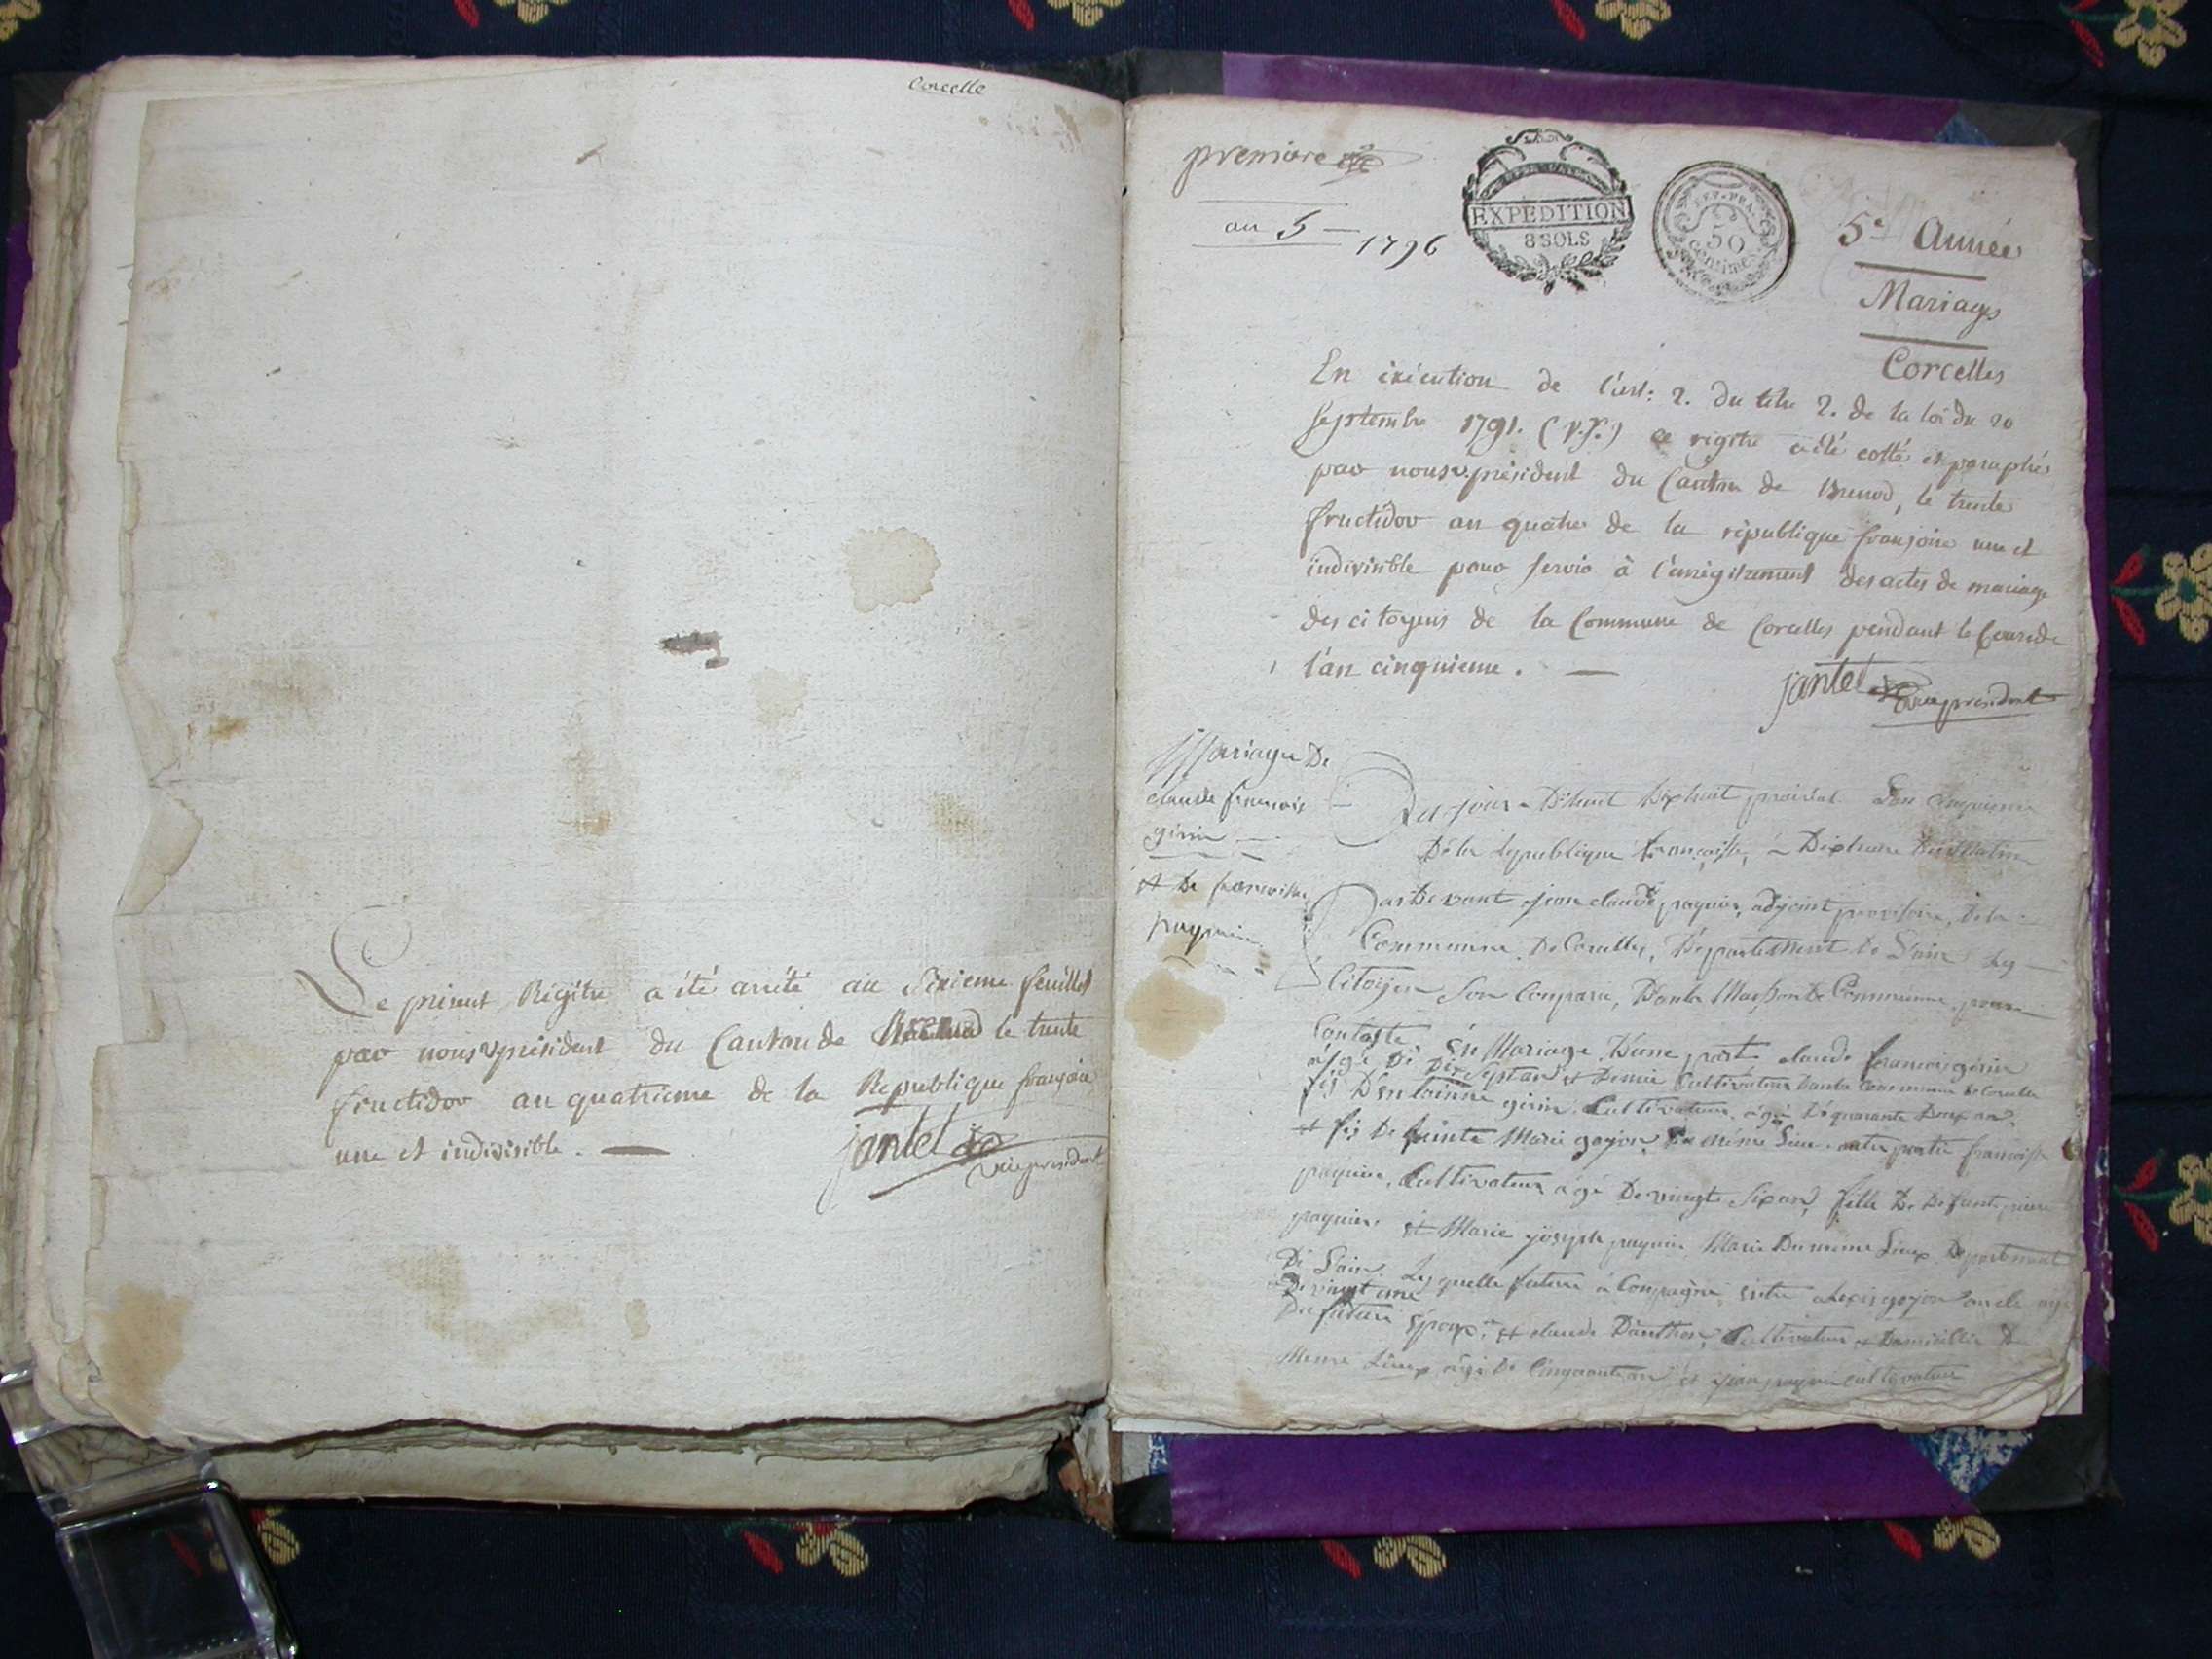 Corcelle
Le présent Régitre a été arrêté au Sixieme feuillet
par nous v. président du Canton de le trente
fructidor an quatrieme de la Republique françoise
une et indivisible.
jantet
vice president
premiere
an 5
1796
EXPEDITION
8 SOLS
REP. FRA.
50
Centimes
5e Année
Mariages
Corcelles
En exécution de l'art: 2. du titre 2. de la loi du 20
septembre 1791. (v. s.) ce régitre a été cotté et paraphé
par nous v. président du Canton de Brenod, le trente
fructidor an quatre de la république françoise une et
indivisible pour servir à l'enrégitrement des actes de mariage
des citoyens de la Commune de Corcelles pendant le Cours de
l'an cinquieme.
jantet
vice president
Mariage De
claude francois
girin
et De francoise
paquier
Du jour D'huit Dixhuit prairial L'an cinquieme
De la Republique francoise, a Dix heure Du Matin
Par Devant jean claude paquier, adjoint provisoire, De la
Commune De Corcelles, Département De L'ain Les
Citoyen Son Comparu, Dans la Maison De Commune, pour
Contracte En Mariage D'une part claude francois girin
âgé De Dix Sept an et Demie Cultivateur Dans la Commune De Corcelle
fis D'entoinne girin Cultivateur âgé De quarante Deux an
et fis De Marie goyon Du même Lieu. autre partie francoise
paquier, Cultivateur agé De vingt Six an, fille De Defunt pierre
paquier et Marie joseph paquier Marié Du même Lieux Département
De L'ain Les quelle future a Compagne entre alexis goyon oncle agé
De vingt une
Du future Epoux et claude Cultivateur et Domicilié De
Meme Lieux agé De Cinquante an et jean paquier cultivateur